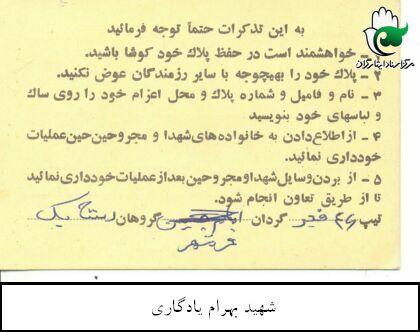 مرکز اسناد ایثارگران
به این تذکرات حتماً توجه فرمائید
۱ - خواهشمند است در حفظ پلاك خود كوشا باشيد.
۲ - پلاك خود را بهيچوجه با ساير رزمندگان عوض نكنيد.
۳ - نام و فاميل و شماره پلاك و محل اعزام خود را روی ساك و لباسهای خود بنويسيد
۴ - از اطلاع دادن به خانواده‌های شهدا و مجروحين حين عمليات خودداری نمائيد.
۵ - از بردن وسايل شهدا و مجروحين بعد از عمليات خودداری نمائيد تا از طريق تعاون انجام شود.
تيپ ۴۶ فجر گردان گروهان
شهید بهرام یادگاری